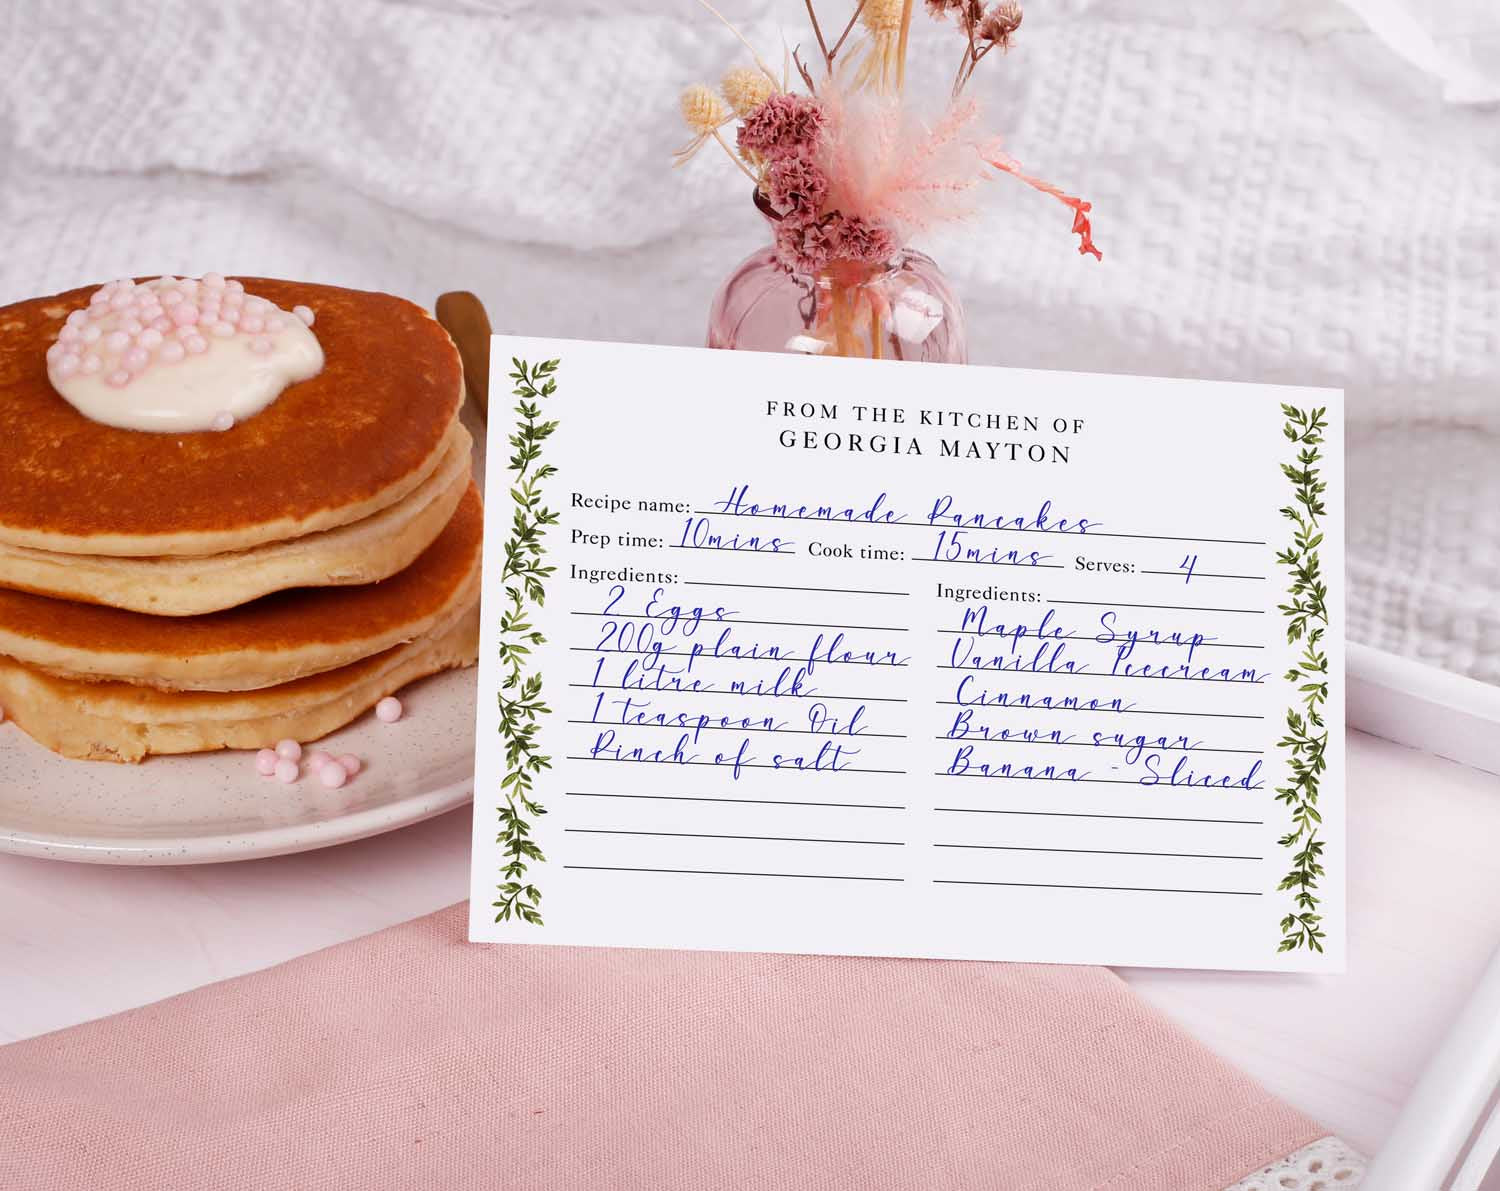 FROM THE KITCHEN OF
GEORGIA MAYTON
Recipe name: Homemade Pancakes
Prep time: 10mins Cook time: 15mins Serves: 4
Ingredients:
2 Eggs
200g plain flour
1 litre milk
1 teaspoon Oil
Pinch of salt
Ingredients:
Maple Syrup
Vanilla Icecream
Cinnamon
Brown sugar
Banana - Sliced